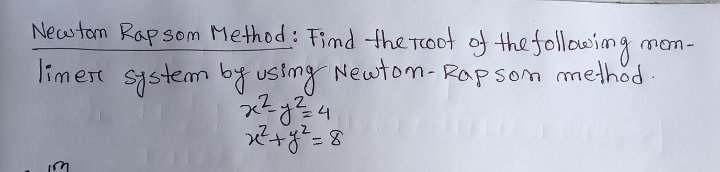 Newton Rapson Method: Find the root of the following non-
liner system by using Newton-Rapson method.
x²-y²=4
x²+y²=8